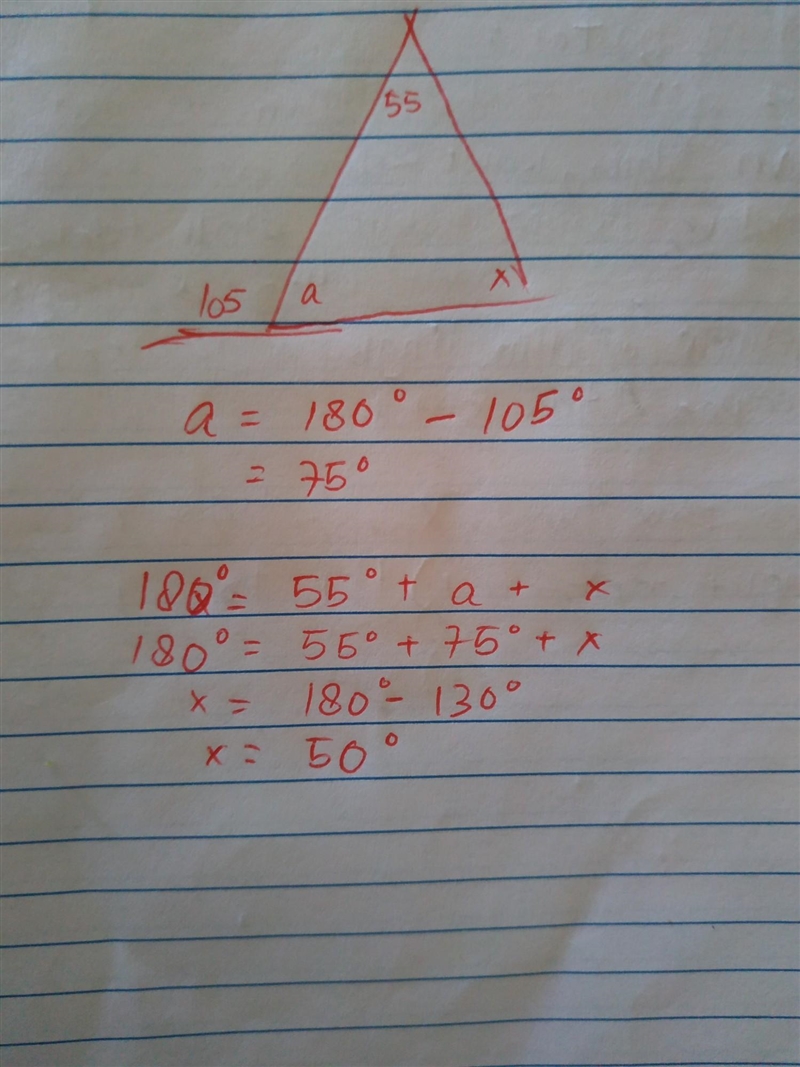 55
105 a x
a = 180° - 105°
= 75°
180° = 55° + a + x
180° = 55° + 75° + x
x = 180° - 130°
x = 50°